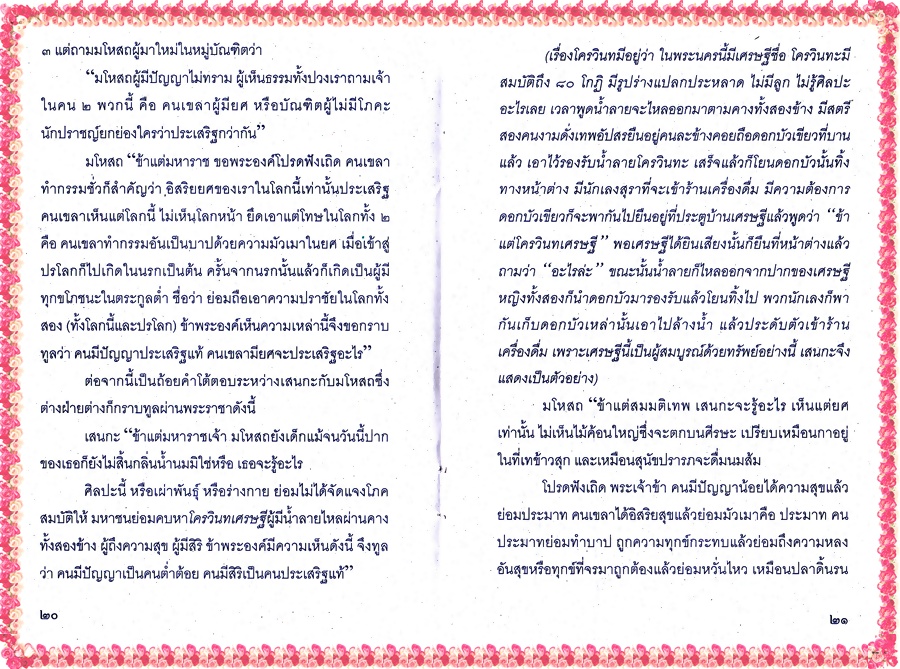 ๓ แต่ถามมโหสถผู้มาใหม่ในหมู่บัณฑิตว่า
“มโหสถผู้มีปัญญาไม่ทราม ผู้เห็นธรรมทั้งปวงเราถามเจ้า
ในคน ๒ พวกนี้ คือ คนเขลาผู้มียศ หรือบัณฑิตผู้ไม่มีโภคะ
นักปราชญ์ยกย่องใครว่าประเสริฐกว่ากัน”
มโหสถ “ข้าแต่มหาราช ขอพระองค์โปรดฟังเถิด คนเขลา
ทำกรรมชั่วก็สำคัญว่า อิสริยยศของเราในโลกนี้เท่านั้นประเสริฐ
คนเขลาเห็นแต่โลกนี้ ไม่เห็นโลกหน้า ยึดเอาแต่โทษในโลกทั้ง ๒
คือ คนเขลาทำกรรมอันเป็นบาปด้วยความมัวเมาในยศ เมื่อเข้าสู่
ปรโลกก็ไปเกิดในนรกเป็นต้น ครั้นจากนรกนั้นแล้วก็เกิดเป็นผู้มี
ทุกขโภชนะในตระกูลต่ำ ชื่อว่า ย่อมถือเอาความปราชัยในโลกทั้ง
สอง (ทั้งโลกนี้และปรโลก) ข้าพระองค์เห็นความเหล่านี้จึงขอกราบ
ทูลว่า คนมีปัญญาประเสริฐแท้ คนเขลามียศจะประเสริฐอะไร”
ต่อจากนี้เป็นถ้อยคำโต้ตอบระหว่างเสนกะกับมโหสถซึ่ง
ต่างฝ่ายต่างก็กราบทูลผ่านพระราชาดังนี้
เสนกะ “ข้าแต่มหาราชเจ้า มโหสถยังเด็กแม้จนวันนี้ปาก
ของเธอก็ยังไม่สิ้นกลิ่นน้ำนมมิใช่หรือ เธอจะรู้อะไร
ศิลปะนี้ หรือเผ่าพันธุ์ หรือร่างกาย ย่อมไม่ได้จัดแจงโภค
สมบัติให้ มหาชนย่อมคบหาโครวินทเศรษฐีผู้มีน้ำลายไหลผ่านคาง
ทั้งสองข้าง ผู้ถึงความสุข ผู้มีสิริ ข้าพระองค์มีความเห็นดังนี้ จึงทูล
ว่า คนมีปัญญาเป็นคนต่ำต้อย คนมีสิริเป็นคนประเสริฐแท้”
๒๐
(เรื่องโครวินทมีอยู่ว่า ในพระนครนี้มีเศรษฐีชื่อ โครวินทะมี
สมบัติถึง ๘๐ โกฏิ มีรูปร่างแปลกประหลาด ไม่มีลูก ไม่รู้ศิลปะ
อะไรเลย เวลาพูดน้ำลายจะไหลออกมาตามคางทั้งสองข้าง มีสตรี
สองคนงามดั่งเทพอัปสรยืนอยู่คนละข้างคอยถือดอกบัวเขียวที่บาน
แล้ว เอาไว้รองรับน้ำลายโครวินทะ เสร็จแล้วก็โยนดอกบัวนั้นทิ้ง
ทางหน้าต่าง มีนักเลงสุราที่จะเข้าร้านเครื่องดื่ม มีความต้องการ
ดอกบัวเขียวก็จะพากันไปยืนอยู่ที่ประตูบ้านเศรษฐีแล้วพูดว่า “ข้า
แต่โครวินทเศรษฐี” พอเศรษฐีได้ยินเสียงนั้นก็ยืนที่หน้าต่างแล้ว
ถามว่า “อะไรล่ะ” ขณะนั้นน้ำลายก็ไหลออกจากปากของเศรษฐี
หญิงทั้งสองก็นำดอกบัวมารองรับแล้วโยนทิ้งไป พวกนักเลงก็พา
กันเก็บดอกบัวเหล่านั้นเอาไปล้างน้ำ แล้วประดับตัวเข้าร้าน
เครื่องดื่ม เพราะเศรษฐีนี้เป็นผู้สมบูรณ์ด้วยทรัพย์อย่างนี้ เสนกะจึง
แสดงเป็นตัวอย่าง)
มโหสถ “ข้าแต่สมมติเทพ เสนกะจะรู้อะไร เห็นแต่ยศ
เท่านั้น ไม่เห็นไม้ค้อนใหญ่ซึ่งจะตกบนศีรษะ เปรียบเหมือนกาอยู่
ในที่เทข้าวสุก และเหมือนสุนัขปรารภจะดื่มนมส้ม
โปรดฟังเถิด พระเจ้าข้า คนมีปัญญาน้อยได้ความสุขแล้ว
ย่อมประมาท คนเขลาได้อิสริยสุขแล้วย่อมมัวเมาคือ ประมาท คน
ประมาทย่อมทำบาป ถูกความทุกข์กระทบแล้วย่อมถึงความหลง
อันสุขหรือทุกข์ที่จรมาถูกต้องแล้วย่อมหวั่นไหว เหมือนปลาดิ้นรน
๒๑